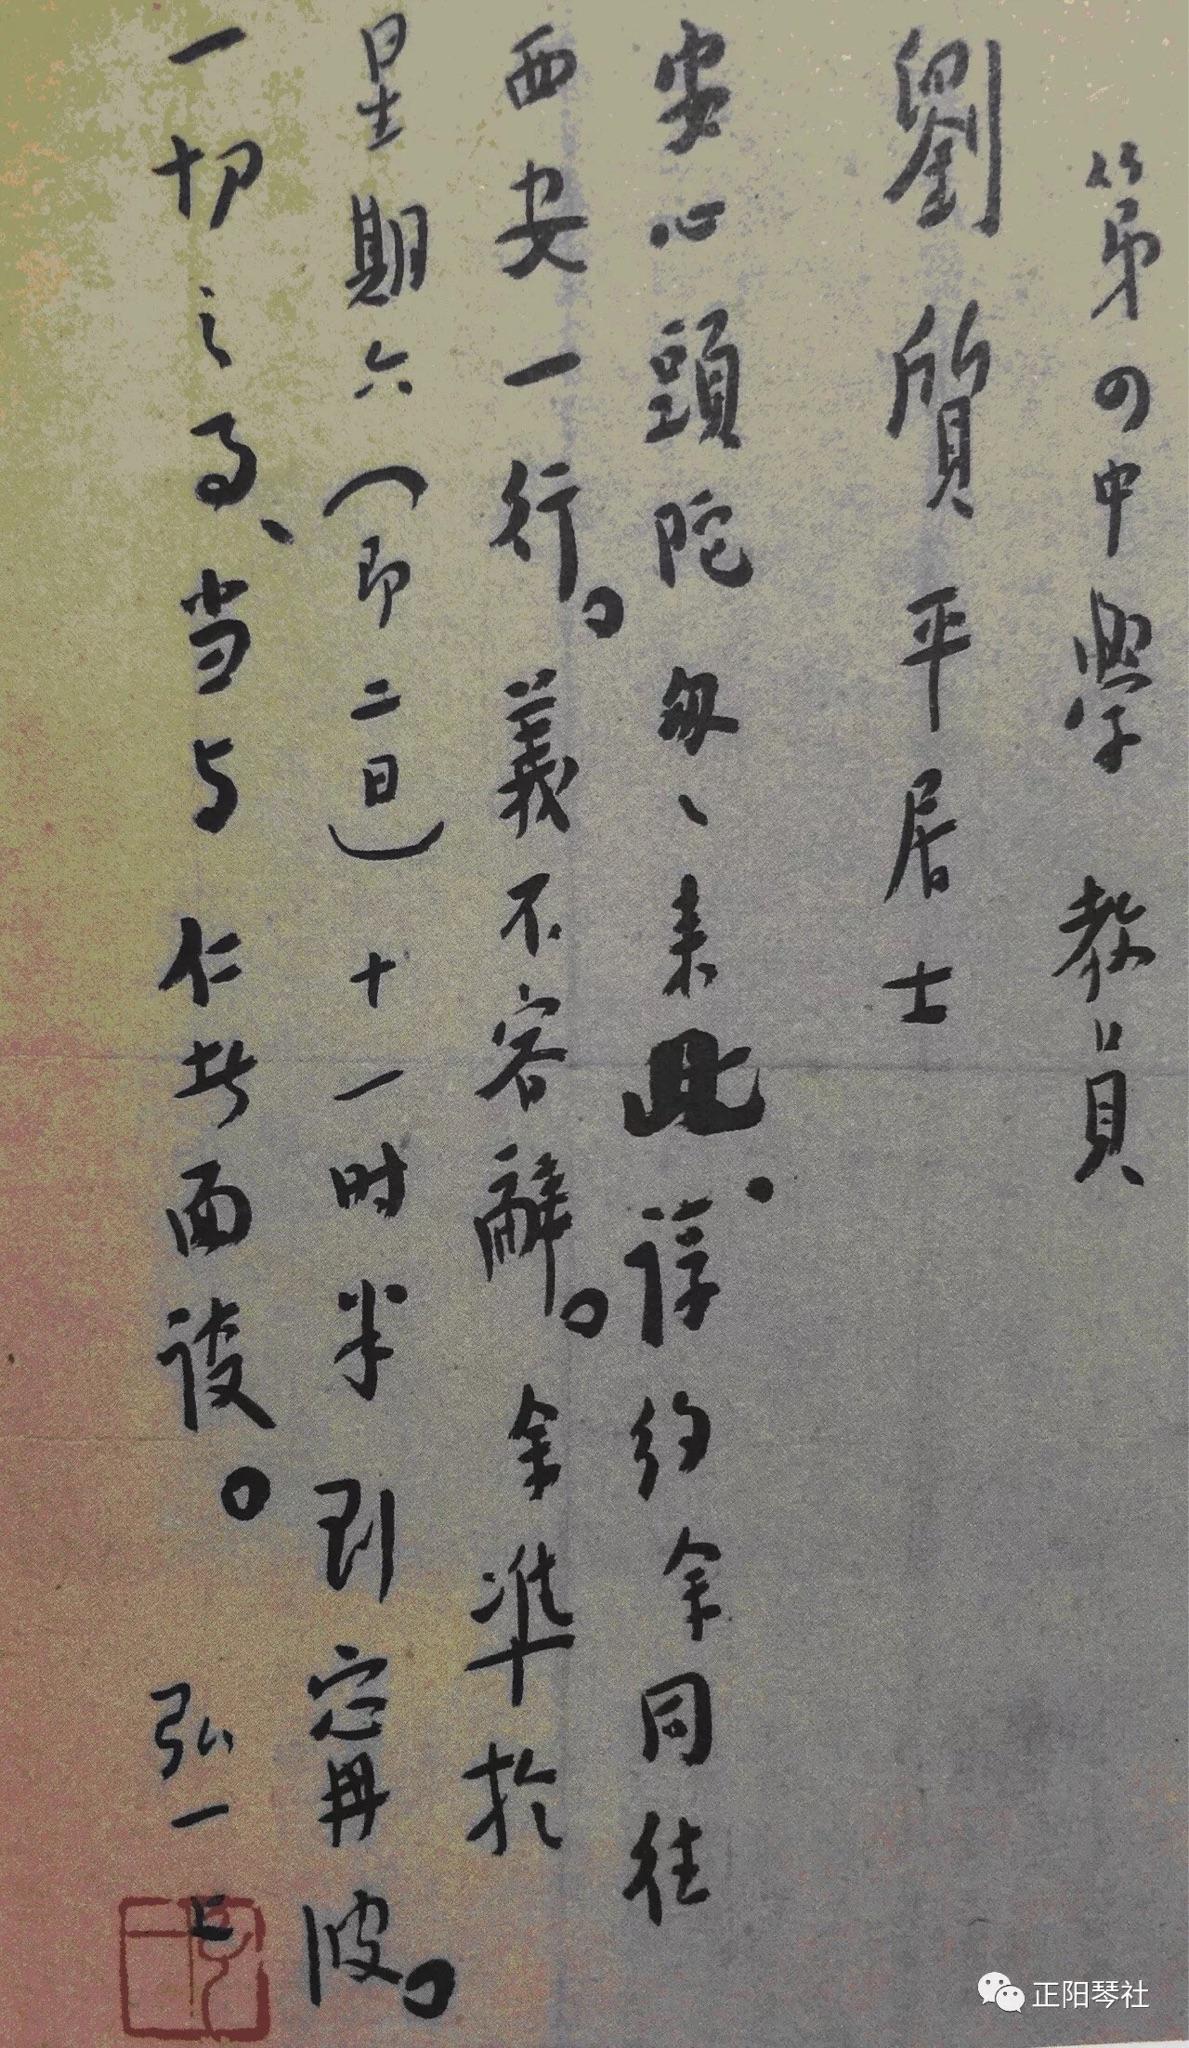 第四中學 教員
劉質平居士
安心頭陀匆匆来此。諄约余同往
西安一行。義不容辭。余准於
星期六（即二日）十一时半到寗再
一切之事、当与仁者面談。
弘一上
正阳琴社